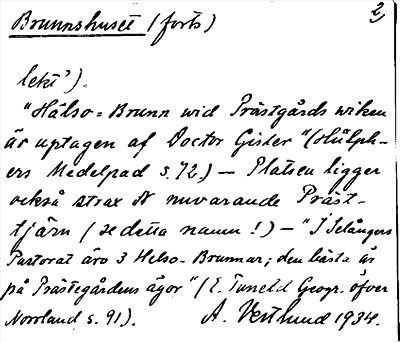 Brunnshuset (forts) 2)
lekt').
"Hälso=Brunn wid Prästgårds wiken
är uptagen af Doctor Gisler" (Hülph-
ers Medelpad s. 72) — Platsen ligger
också strax N nuvarande Präst-
tjärn (se detta namn!) — "I Selångers
Pastorat äro 3 Helso-Brunnar; den bästa är
på Prästegårdens ägor" (E. Tuneld Geogr. öfver
Norrland s. 91). A. Vestlund 1934.